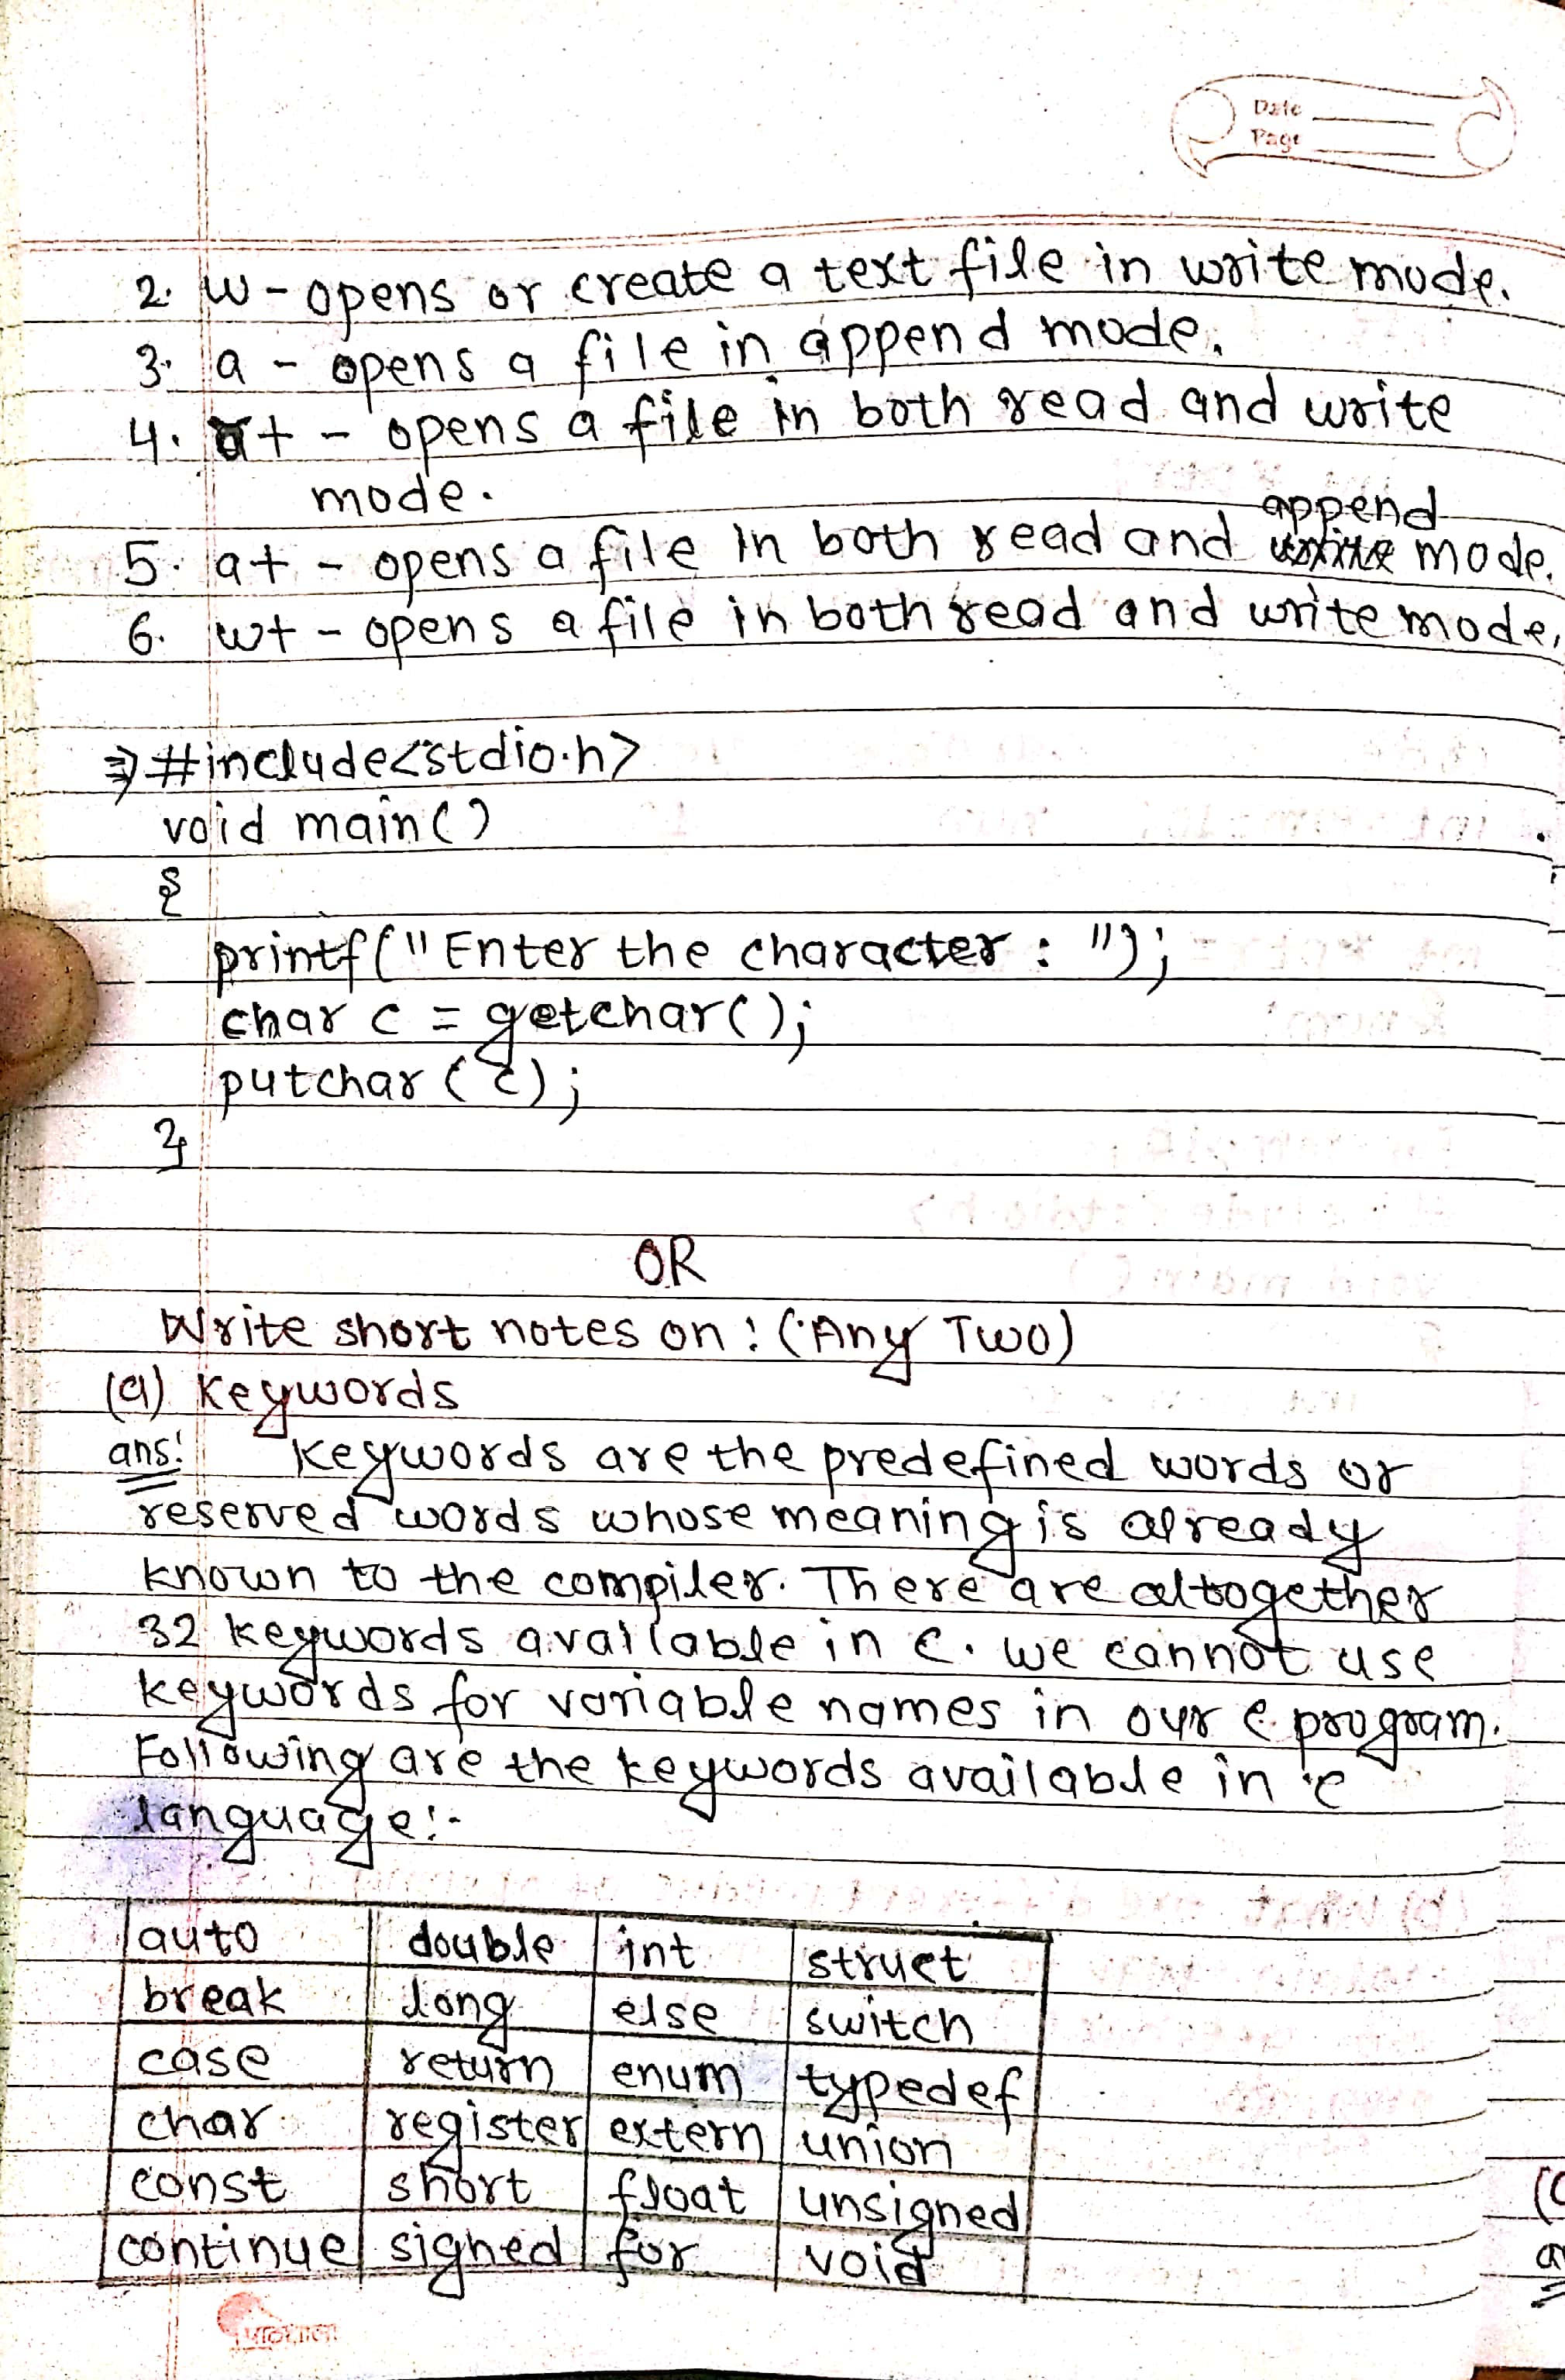 Date
Page
2. w - opens or create a text file in write mode.
3. a - opens a file in append mode.
4. r+ - opens a file in both read and write
mode.
append
5. a+ - opens a file in both read and write mode.
6. w+ - opens a file in both read and write mode.
⇒ #include<stdio.h>
void main()
{
printf("Enter the character : ");
char c = getchar();
putchar(c);
}
OR
Write short notes on : (Any Two)
(a) Keywords
ans: Keywords are the predefined words or
reserved words whose meaning is already
known to the compiler. There are altogether
32 keywords available in C. we cannot use
keywords for variable names in our C program.
Following are the keywords available in C
language:-
auto double int struct
break long else switch
case return enum typedef
char register extern union
const short float unsigned
continue signed for void